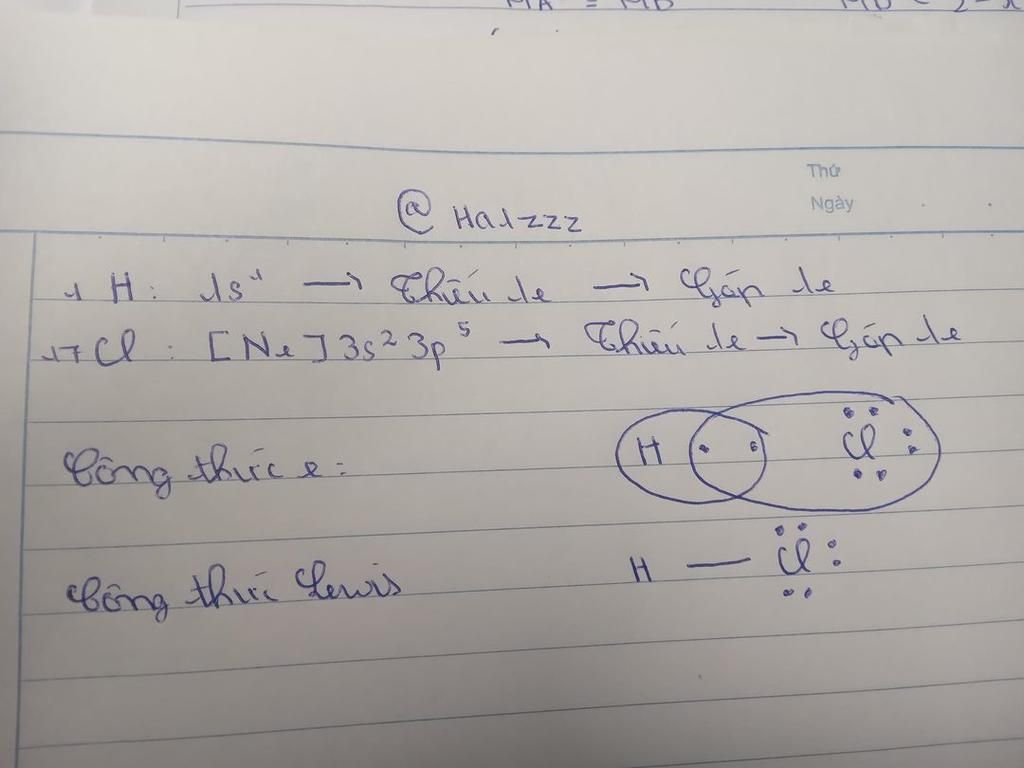 Thứ
Ngày
@ Ha1zzz
1 H: 1s¹ → Thiếu 1e → Góp 1e
17 Cl: [Ne] 3s² 3p⁵ → Thiếu 1e → Góp 1e
Công thức e: H Cl
Công thức Lewis H — Cl